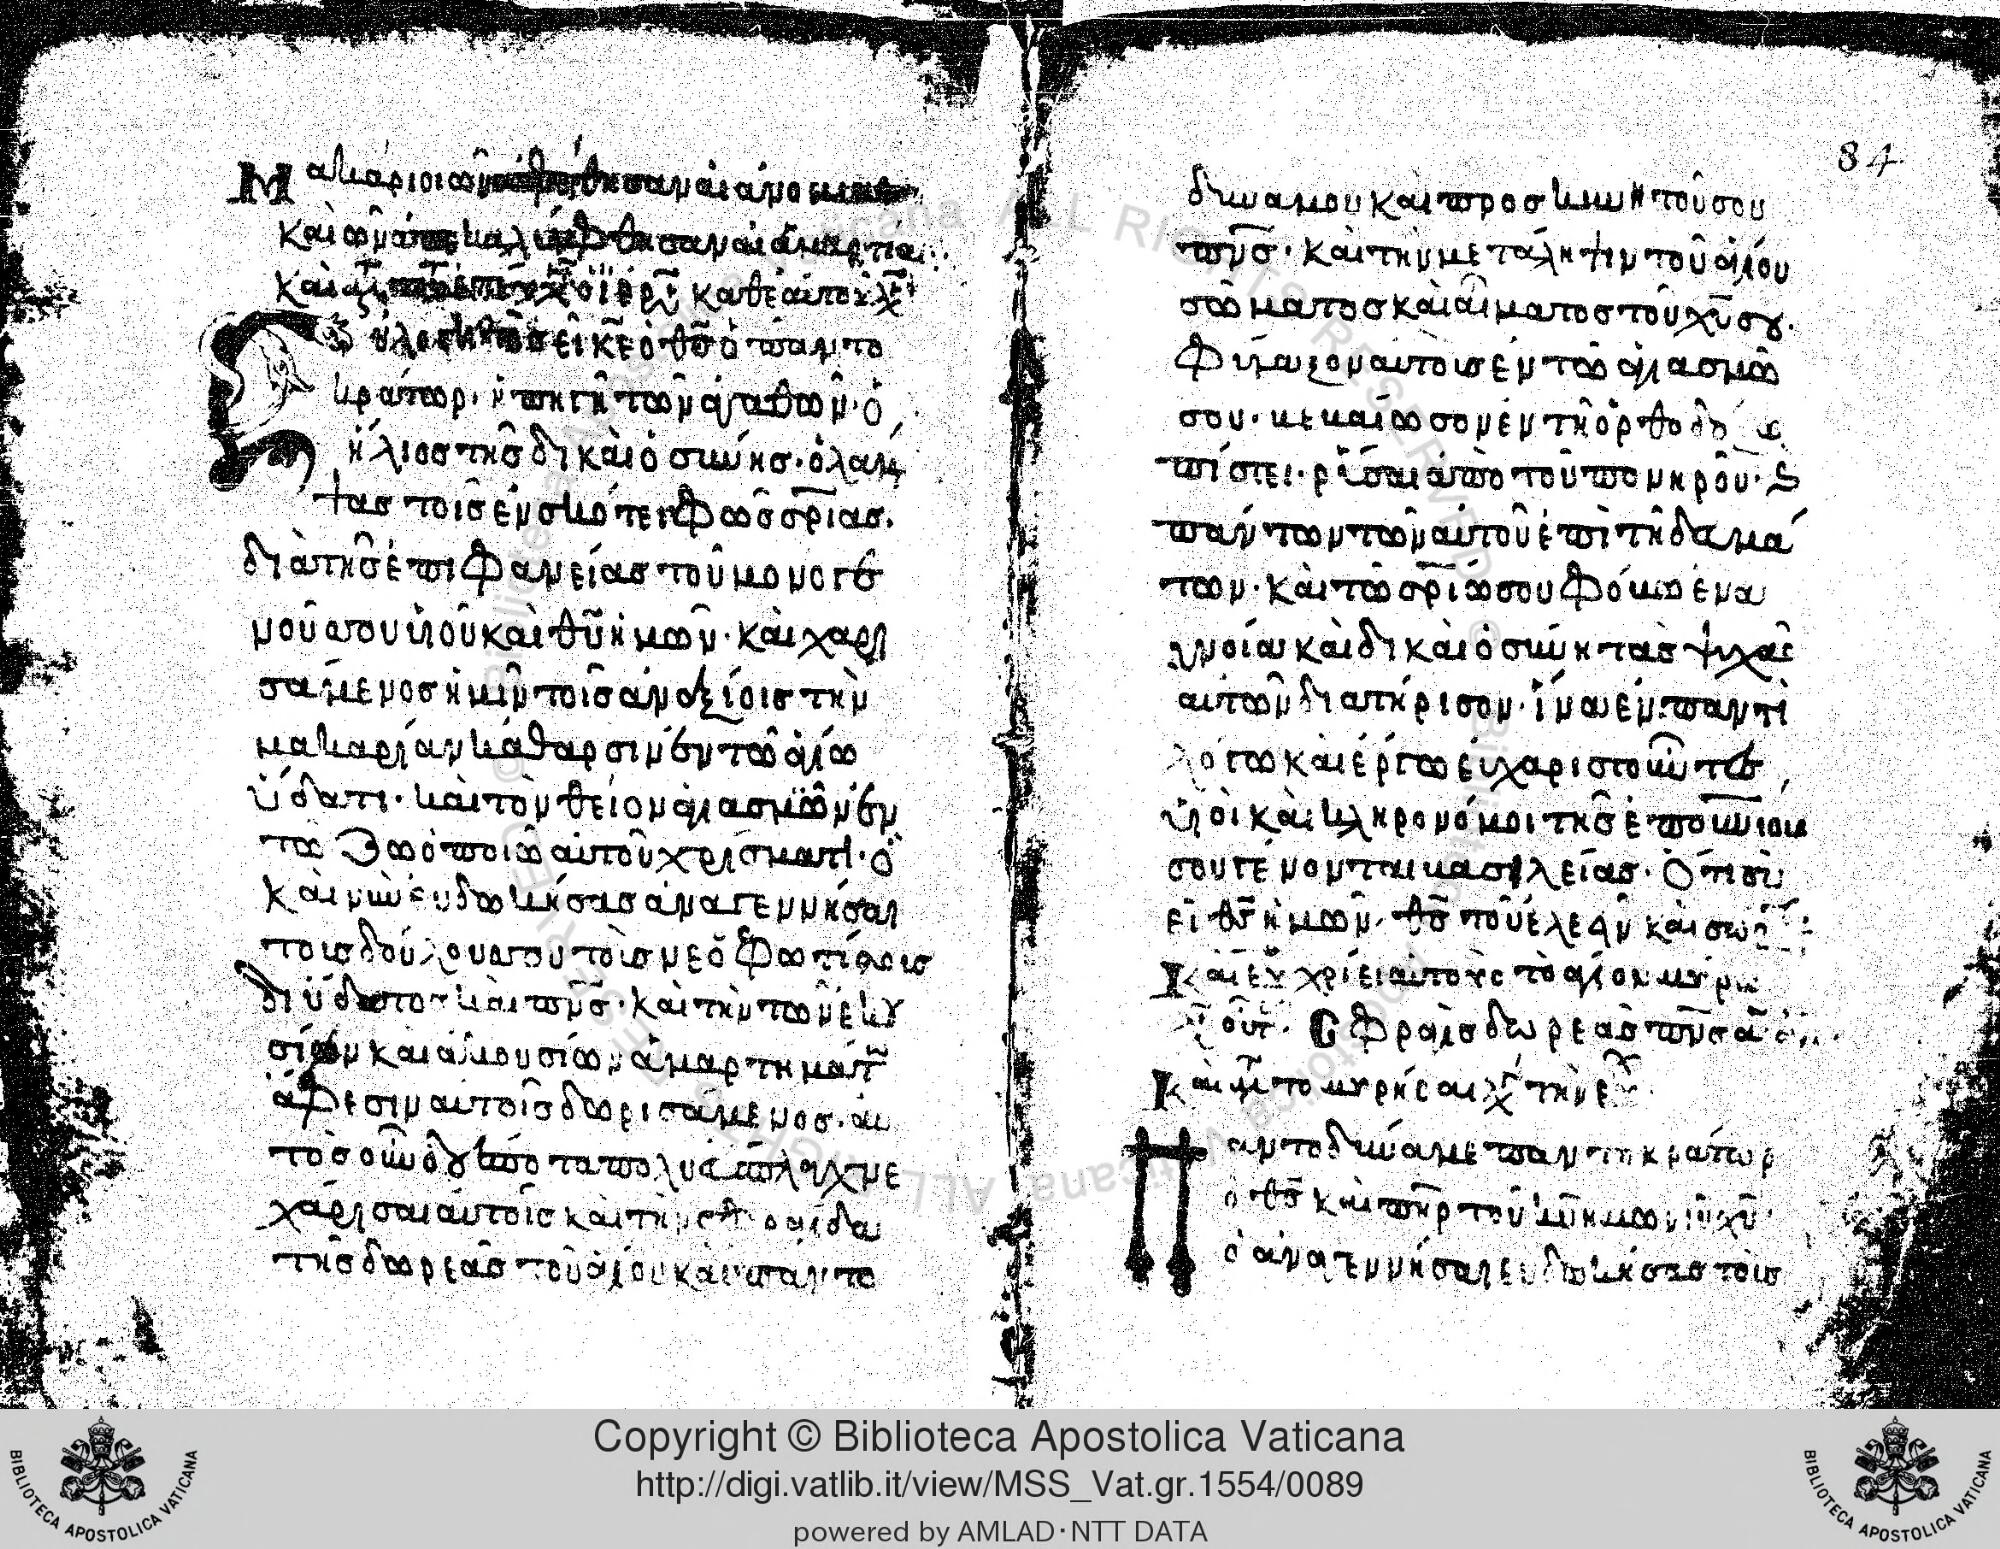 Μακάριοι ὧν ἀφέθησαν αἱ ἀνομίαι
καὶ ὧν ἐπεκαλύφθησαν αἱ ἁμαρτίαι:
καὶ
εὐλογητὸς εἶ κε ὁ θς ὁ παντο
κράτωρ· ἡ πηγὴ τῶν ἀγαθῶν· ὁ
ἥλιος τῆς δικαιὁσύνης· ὁ λάμ
ψας τοῖς ἐν σκότει φῶς σριας·
διὰ τῆς ἐπιφανείας τοῦ μονογε
νοῦ σου υἱοῦ καὶ θυ ἡμῶν· καὶ χαρι
σάμενος ἡμῖν τοῖς ἀναξίοις τὴν
μακαρίαν κάθαρσιν ἐν τῶ ἁγίω
ὕδατι· καὶ τὸν θεῖον ἁγιασμὼν ἐν
τῶ ζωὁποιῶ αὐτοῦ χρίσματι· ὁ
καὶ νῦν εὐδωκήσας ἀναγεννήσαι
τοις δούλους σου τοὶς νεὁφωτίστοις
δι ὕδατος καὶ πνς· καὶ τὴν τῶν ἑκου
σίων καὶ ἀκουσίων ἁμαρτημάτ
ἄφεσιν αυτοῖς δωρισάμενος· αυ
τὸς οῦν
χάρισαι αὐτοῖς καὶ τὴν σφραγίδα
τῆς δωρεᾶς τοῦ ἁγίου καὶ παντο
84
δυναμου καὶ προσκυνητοῦ σου
πνς· καὶ τὴν μετάληψιν τοῦ ἁγίου
σώματος καὶ αἵματος τοῦ χυ σου·
φύλαξον αυτοις ἐν τῶ ἁγιασμῶ
σου· βεβαίωσον ἐν τῆ ὀρθοδόξ
πίστει· ρῦσαι ἀπὸ τοῦ πονηροῦ· καὶ
πάντων τῶν αὐτοῦ ἐπιτηδαμά
των· καὶ τῶ σριώ σου φόβω ἐν α
γνοία καὶ δικαιὁσύνη τὰς ψυχὰς
αυτῶν διατήρισον· ἵνα ἐν παντὶ
λόγω καὶ ἔργω εὐχαριστοῦντες
υἱοὶ καὶ κληρονόμοι τῆς ἐπουνιου
σου γένονται βασιλείας· ὅτι σὺ
εἶ θς ἡμῶν· θς τοῦ ἐλεεῖν καὶ σώ
καὶ εὐ χρίει αὐτοὺς τὸ ἅγιον μύρον
οὕτ· Σφραὶς δωρεὰς πνς ἁ
καὶ μετ τὸ μυρήσαι τὴν εὐχ
Παντοδύναμε παντοκράτωρ
ὁ θς καὶ πηρ τοῦ κυ ἡμῶν ιυ χυ·
ὁ ἀναγεννήσαι εὐδωκήσας τοὶς
Copyright © Biblioteca Apostolica Vaticana
http://digi.vatlib.it/view/MSS_Vat.gr.1554/0089
powered by AMLAD·NTT DATA
BIBLIOTECA APOSTOLICA VATICANA
BIBLIOTECA APOSTOLICA VATICANA